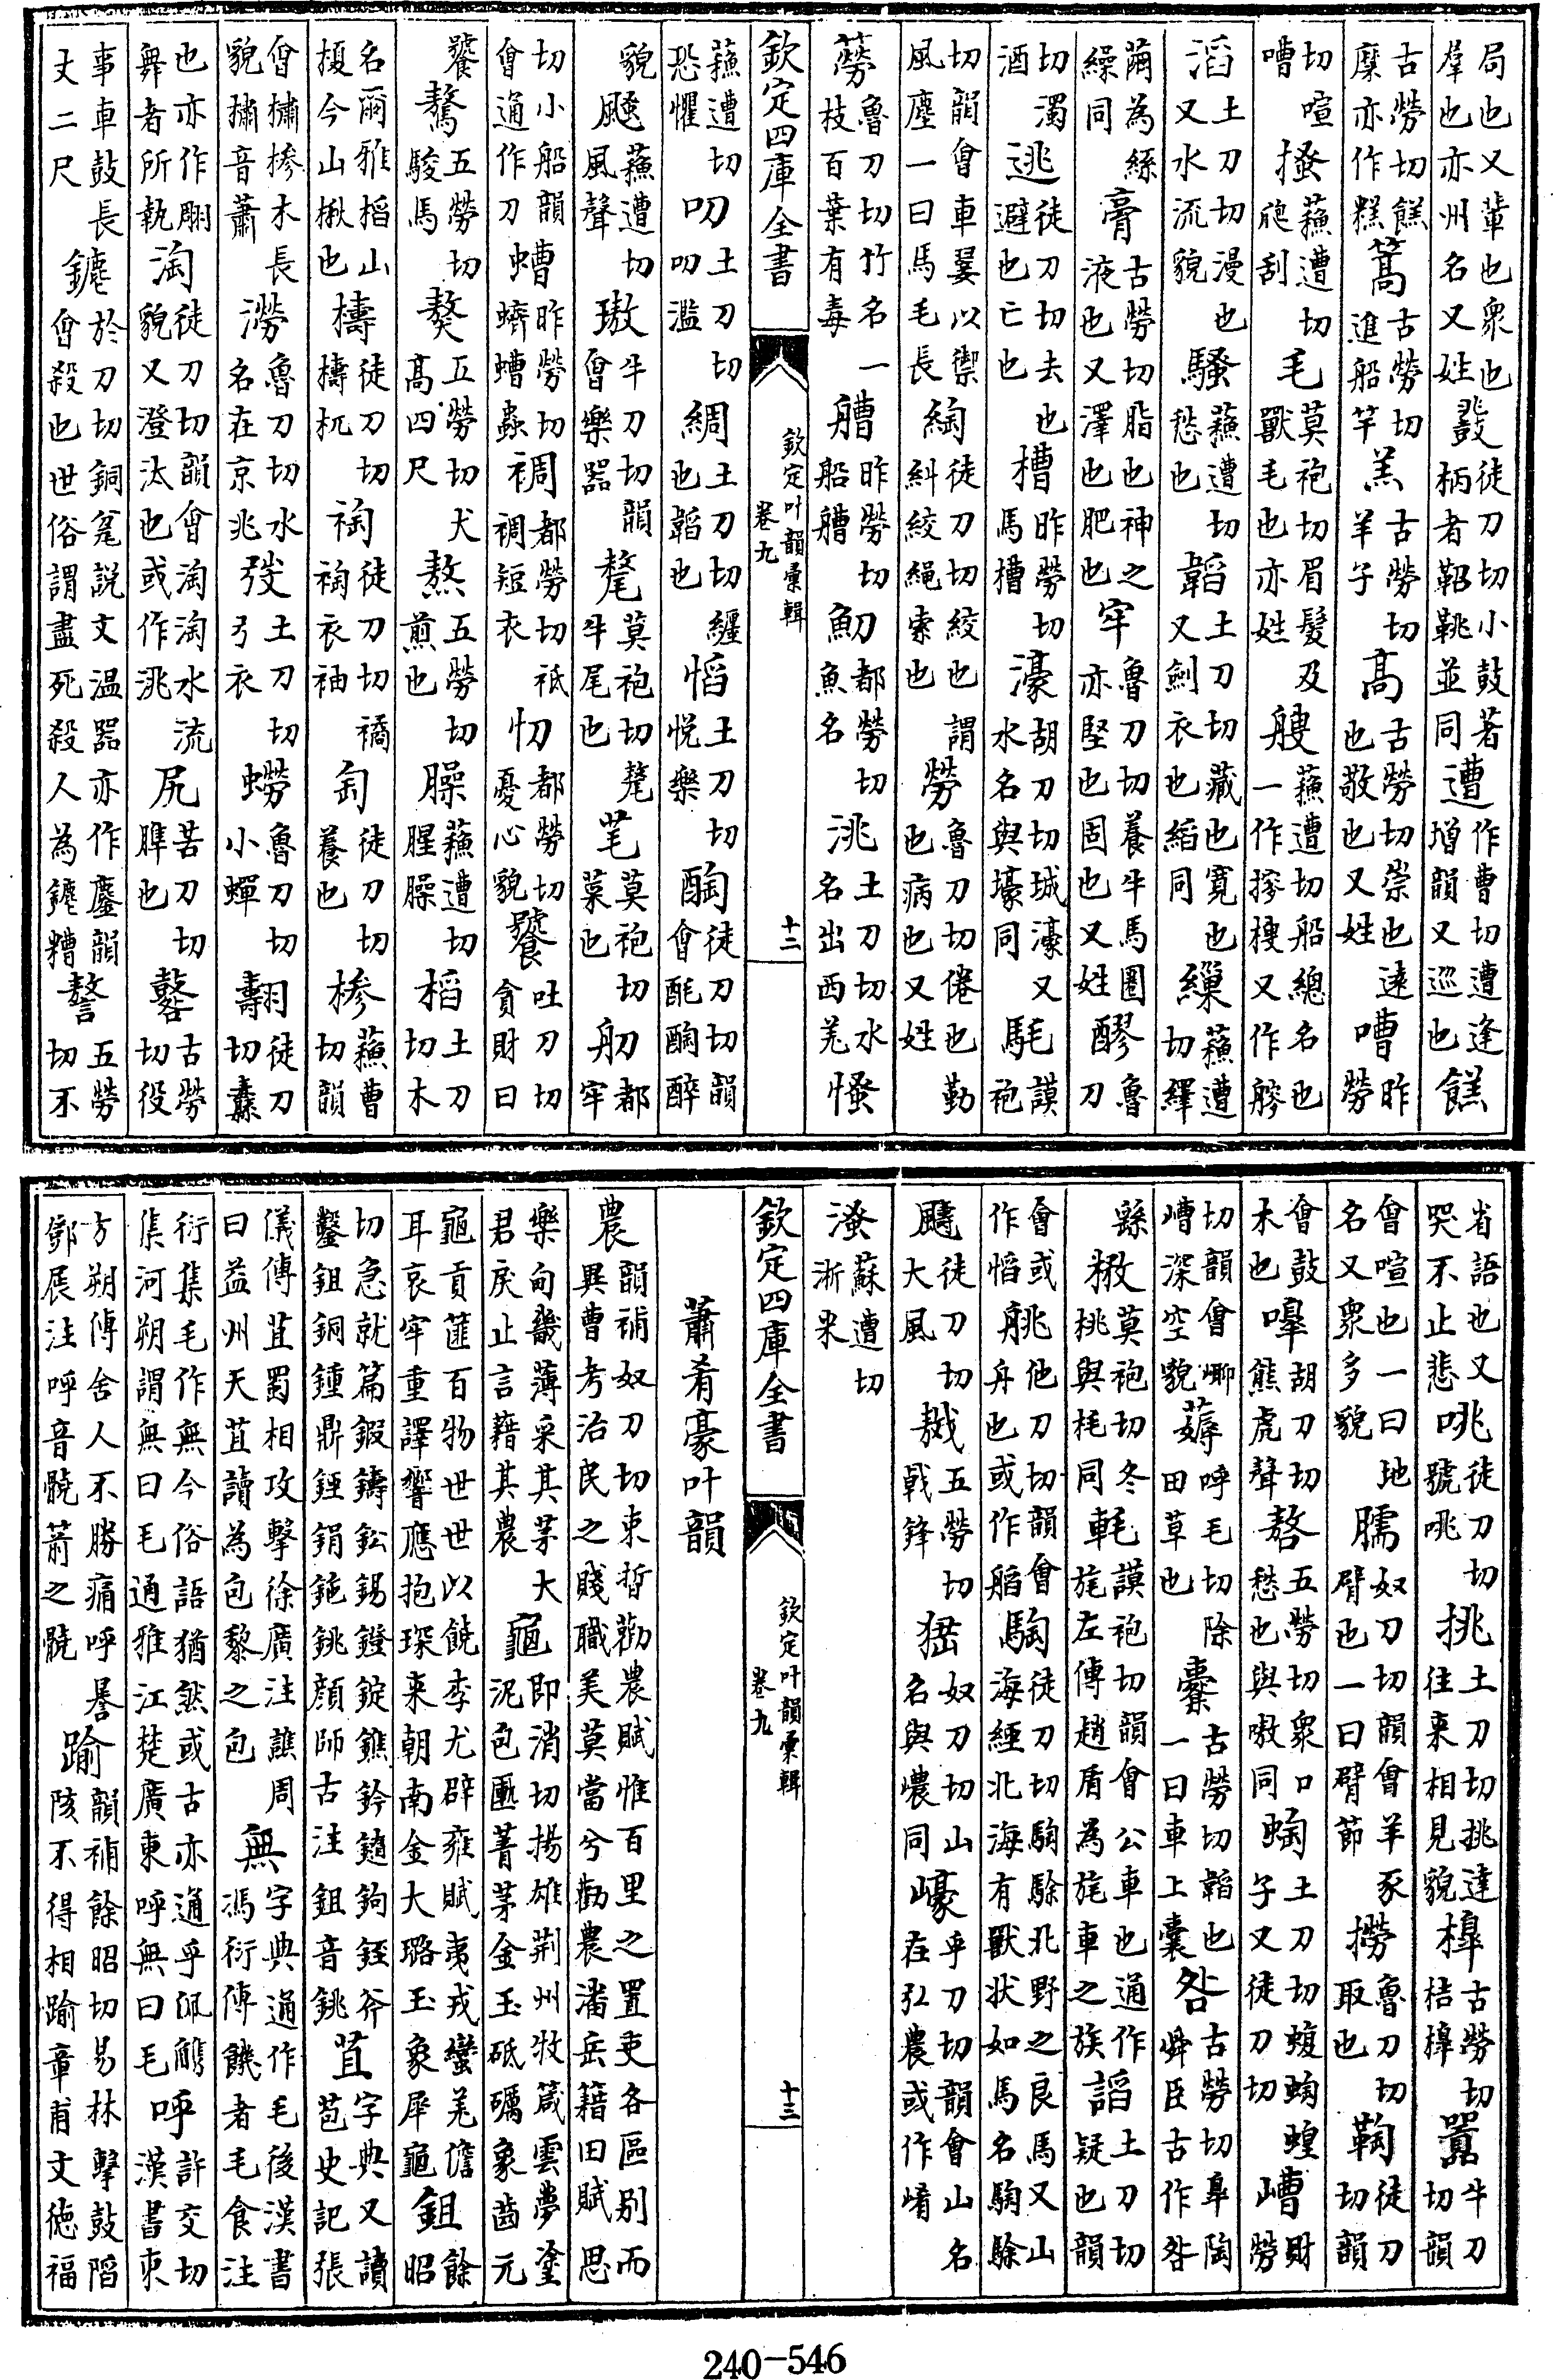 局也又軰也衆也羣也亦州名又姓鼗徒刀切小鼓著柄者鞀鞉並同遭作曹切遭逢增韻又巡也餻
古勞切餻糜亦作糕篙古勞切進船竿羔古勞切羊子高古勞切崇也逺也敬也又姓嘈昨勞
切喧嘈搔蘓遭切爬刮毛莫袍切眉髮及獸毛也亦姓艘蘓遭切船總名也一作又作
滔土刀切漫也又水流貌騷蘓遭切愁也韜土刀切藏也寛也又劍衣也縚同繅蘓遭切繹
繭為絲繰同膏古勞切脂也神之液也又澤也肥也牢魯刀切養牛馬圈亦堅也固也又姓醪魯刀
切濁酒逃徒刀切去也避也亡也槽昨勞切馬槽濠胡刀切城濠又水名與壕同髦謨袍
切韻㑹車翣以禦風塵一曰馬毛長綯徒刀切絞也謂糾絞繩索也勞魯刀切倦也勤也病也又姓
䓯魯刀切竹名一枝百葉有毒艚昨勞切船艚魛都勞切魚名洮土刀切水名出西羌慅
欽定四庫全書 欽定叶韻彚輯 卷九 十二
蘓遭切恐懼叨土刀切叨濫綢土刀切纏也韜也慆土刀切悦樂醄徒刀切韻㑹酕醄醉
貌颾蘓遭切風聲璈牛刀切韻㑹樂器氂莫袍切氂牛尾也芼莫袍切菜也舠都牢
切小船韻㑹通作刀螬昨勞切蠐螬蟲裯都勞切衹裯短衣忉都勞切憂心貌饕吐刀切貪財曰
饕驁五勞切駿馬獒五勞切犬高四尺熬五勞切煎也臊蘓遭切腥臊槄土刀切木
名爾雅槄山榎今山楸也檮徒刀切檮杌裪徒刀切裪衣袖匋徒刀切養也槮蘓曹切韻
㑹橚槮木長貌橚音蕭澇魯刀切水名在京兆弢土刀切弓衣蟧魯刀切小蟬翿徒刀切纛
也亦作翢舞者所執淘徒刀切韻㑹淘淘水流貌又澄汰也或作洮尻苦刀切脽也鼛古勞切役
事車鼓長丈二尺鏖於刀切銅瓫說文温器亦作鏖韻㑹殺也世俗謂盡死殺人為鏖糟謷五勞切不
省語也又哭不止悲咷徒刀切號咷挑土刀切挑達往来相見貌槹古勞切桔槹囂牛刀切韻
㑹喧也一曰地名又衆多貌臑奴刀切韻㑹羊豕臂也一曰臂節撈魯刀切取也鞠徒刀切韻
㑹鼓木也嘷胡刀切熊虎聲嗸五勞切衆口愁也與嗷同蜪土刀切蝮蜪蝗子又徒刀切嶆財勞
切韻㑹㟹嶆深空貌薅呼毛切除田草也櫜古勞切韜也一曰車上囊咎古勞切臯陶舜臣古作咎
繇莫袍切冬桃與耗同軞謨袍切韻㑹公車也通作旄左傳趙盾為旄車之族謟土刀切疑也韻
㑹或作慆他刀切韻㑹舟也或作騊徒刀切騊駼北野之良馬又山海經北海有獸狀如馬名騊駼
颵徒刀切大風五勞切戟鋒猱奴刀切山名與㺜同㠙乎刀切韻㑹山名在弘農或作崤
溞蘇遭切淅米
欽定四庫全書 欽定叶韻彚輯 卷九 十三
蕭肴豪叶韻
農韻補奴刀切束晳勸農賦惟百里之置吏各區别而異曹考治民之賤職美莫當兮勸農潘岳籍田賦思
樂甸畿薄采其茅大君戾止言藉其農龜即消切揚雄荆州牧箴雲夢塗泥包匭菁茅金玉砥礪象齒元
龜貢篚百物世世以饒李尤辟雍賦夷戎蠻羌儋耳哀牢重譯響應抱琛来朝南金大璐玉象犀龜鉏餘昭
切急就篇鍛鑄鉛錫鐙錠鐎鈐鐩鉤銍斧鑿鉏銅鍾鼎鋞鋗鉇銚顔師古注鉏音銚苴字典又讀苞史記張
儀傳苴蜀相攻擊徐廣注譙周曰益州天苴讀為包黎之包無字典通作毛後漢書馮衍傳饑者毛食注
衍集毛作無今俗語猶然或古亦通乎佩觿集河朔謂無曰毛通雅江楚廣東呼無曰毛呼許交切漢書東
方朔傳舍人不勝痛呼謈鄧展注呼音髐箭之髐踰韻補餘昭切易林擊鼓陷陔不得相踰章甫文徳福
240-546